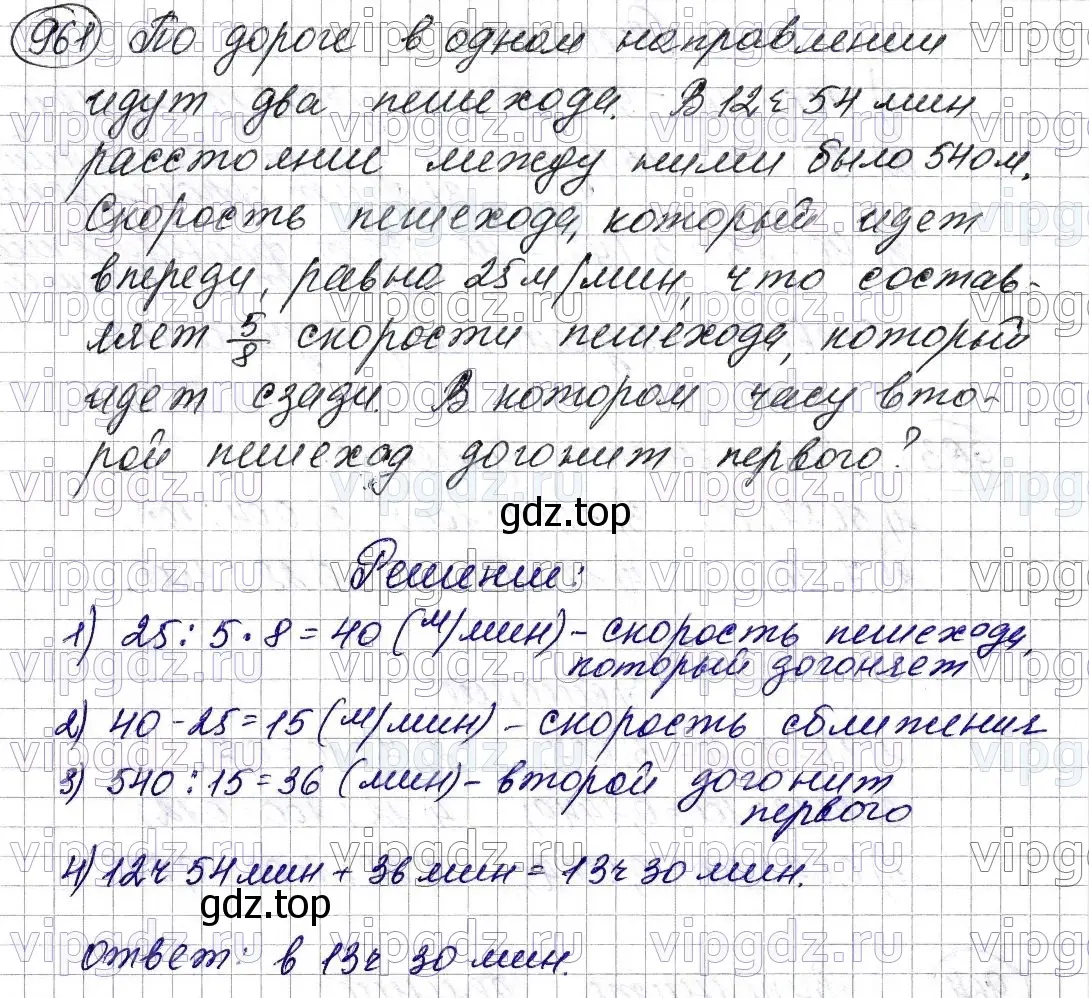 961 По дороге в одном направлении
идут два пешехода. В 12 ч 54 мин
расстояние между ними было 540 м.
Скорость пешехода, который идет
впереди, равна 25 м/мин, что состав-
ляет 5/8 скорости пешехода, который
идет сзади. В котором часу вто-
рой пешеход догонит первого?
gdz.top
Решение:
1) 25 : 5 · 8 = 40 (м/мин) – скорость пешехода,
который догоняет
2) 40 - 25 = 15 (м/мин) – скорость сближения
3) 540 : 15 = 36 (мин) – второй догонит
первого
4) 12 ч 54 мин + 36 мин = 13 ч 30 мин.
gdz.top
Ответ: в 13 ч 30 мин.